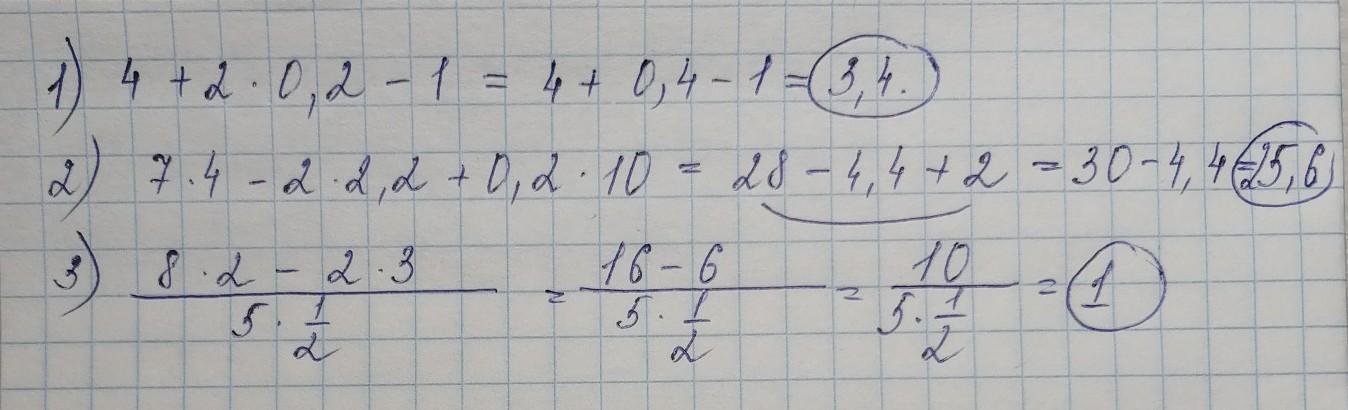 1) 4 + 2 · 0,2 − 1 = 4 + 0,4 − 1 = 3,4.
2) 7 · 4 − 2 · 2,2 + 0,2 · 10 = 28 − 4,4 + 2 = 30 − 4,4 = 25,6
3) \frac{8 · 2 − 2 · 3}{5 · \frac{1}{2}} = \frac{16 − 6}{5 · \frac{1}{2}} = \frac{10}{5 · \frac{1}{2}} = 1